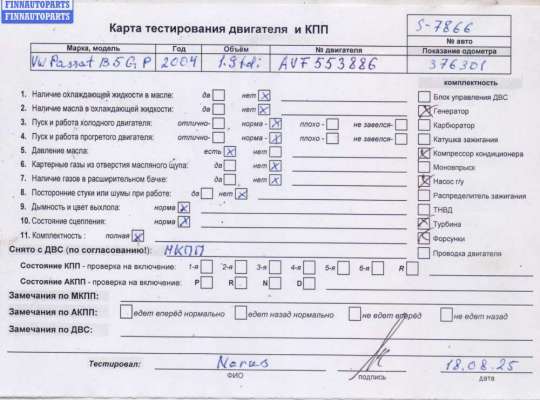 FINNAUTOPARTS
FINNAUTOPARTS
Карта тестирования двигателя и КПП
S-7866
№ авто
Марка, модель Год Объём № двигателя Показание одометра
VW Passat B5 GP 2004 1.9tdi AVF553886 376301
комплектность
1. Наличие охлаждающей жидкости в масле: да нет X
2. Наличие масла в охлаждающей жидкости: да нет X
3. Пуск и работа холодного двигателя: отлично- норма - X плохо - не завелся-
4. Пуск и работа прогретого двигателя: отлично- норма - X плохо - не завелся-
5. Давление масла: есть X нет
6. Картерные газы из отверстия масляного щупа: да нет X
7. Наличие газов в расширительном бачке: да нет X
8. Посторонние стуки или шумы при работе: да нет X
9. Дымность и цвет выхлопа: норма X
10. Состояние сцепления: норма X
11. Комплектность : полная X
Блок управления ДВС
X Генератор
Карбюратор
Катушка зажигания
X Компрессор кондиционера
Моновпрыск
X Насос г/у
Распределитель зажигания
ТНВД
X Турбина
X Форсунки
Проводка двигателя
Снято с ДВС (по согласованию!): МКПП
Состояние КПП - проверка на включение: 1-я 2-я 3-я 4-я 5-я 6-я R
Состояние АКПП - проверка на включение: P R N D
Замечания по МКПП:
Замечания по АКПП: едет вперёд нормально едет назад нормально не едет вперёд не едет назад
Замечания по ДВС:
Тестировал: 18.08.25
ФИО подпись дата